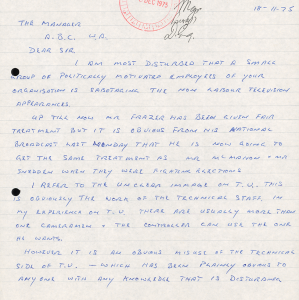 18-11-75
DEC 1975
THE MANAGER
A.B.C. W.A.
DEAR SIR
I AM MOST DISTURBED THAT A SMALL
GROUP OF POLITICALLY MOTIVATED EMPLOYEES OF YOUR
ORGANISATION IS SABOTARING THE NON LABOUR TELEVISION
APPEARANCES.
UP TILL NOW MR FRAZER HAS BEEN GIVEN FAIR
TREATMENT BUT IT IS OBVIOUS FROM HIS NATIONAL
BROADCAST LAST MONDAY THAT HE IS NOW GOING TO
GET THE SAME TREATMENT AS MR McMAHON & MR
SNEDDEN WHEN THEY WERE FIGHTING ELECTIONS
I REFER TO THE UNCLEAR IMAGE ON T.V. THIS
IS OBVIOUSLY THE WORK OF THE TECHNICAL STAFF. IN
MY EXPERIENCE ON T.V. THERE ARE USUALLY MORE THAN
ONE CAMERAMEN & THE CONTROLLER CAN USE THE ONE
HE WANTS.
HOWEVER IT IS AN OBVIOUS MISUSE OF THE TECHNICAL
SIDE OF T.V. — WHICH HAS BEEN PLAINLY OBVIOUS TO
ANYONE WITH ANY KNOWLEDGE THAT IS DISTURBING